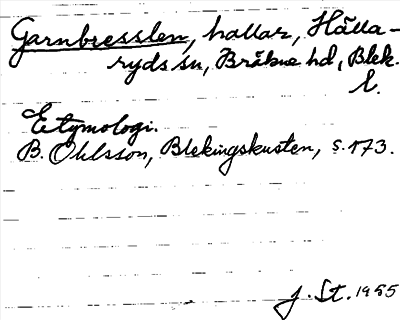 Garnbresslen, hallar, Hälla-
ryds sn, Bräkne hd, Blek.
l.
Etymologi.
B. Ohlsson, Blekingskusten, s. 173.
J. St. 1955